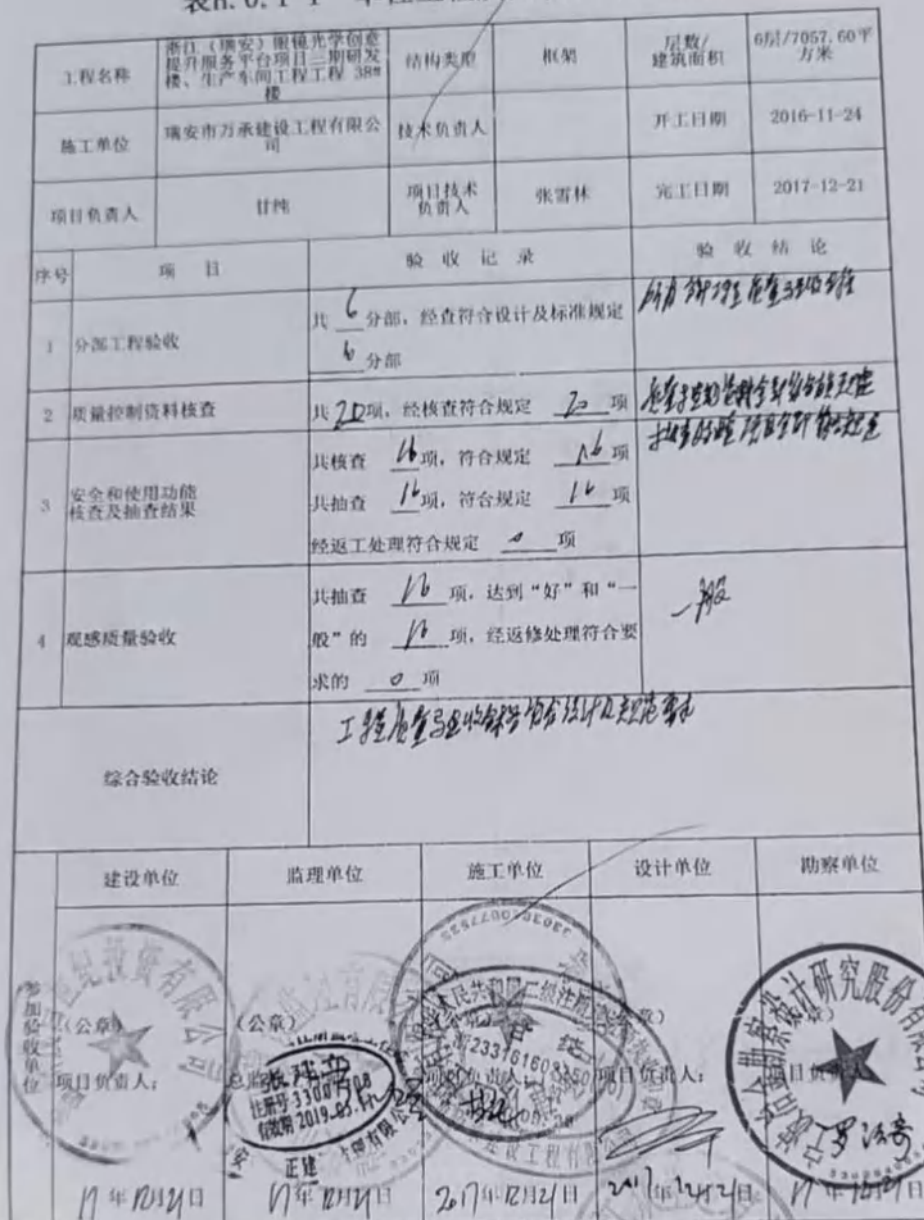 表H.0.1-1
工程名称
浙江（瑞安）眼镜光学创意
提升服务平台项目二期研发
楼、生产车间工程工程 38#
楼
结构类型
框架
层数/
建筑面积
6层/7057.60平
方米
施工单位
瑞安市万承建设工程有限公
司
技术负责人
开工日期
2016-11-24
项目负责人
甘纯
项目技术
负责人
张雪林
完工日期
2017-12-21
序号
项 目
验 收 记 录
验 收 结 论
1
分部工程验收
共 6 分部，经查符合设计及标准规定
6 分部
2
质量控制资料核查
共20项，经核查符合规定 20 项
3
安全和使用功能
核查及抽查结果
共核查 16项，符合规定 16 项
共抽查 16项，符合规定 16 项
经返工处理符合规定 0 项
4
观感质量验收
共抽查 16 项，达到“好”和“一
般”的 16 项，经返修处理符合要
求的 0 项
一般
综合验收结论
工程质量验收符合设计及规范要求
参加验收单位
建设单位
监理单位
施工单位
设计单位
勘察单位
(公章)
(公章)
项目负责人：
项目负责人：
张建立
注册号 3300
有效期 2019.05.11
17年12月21日
17年12月21日
2017年12月21日
2017年12月21日
17年12月21日